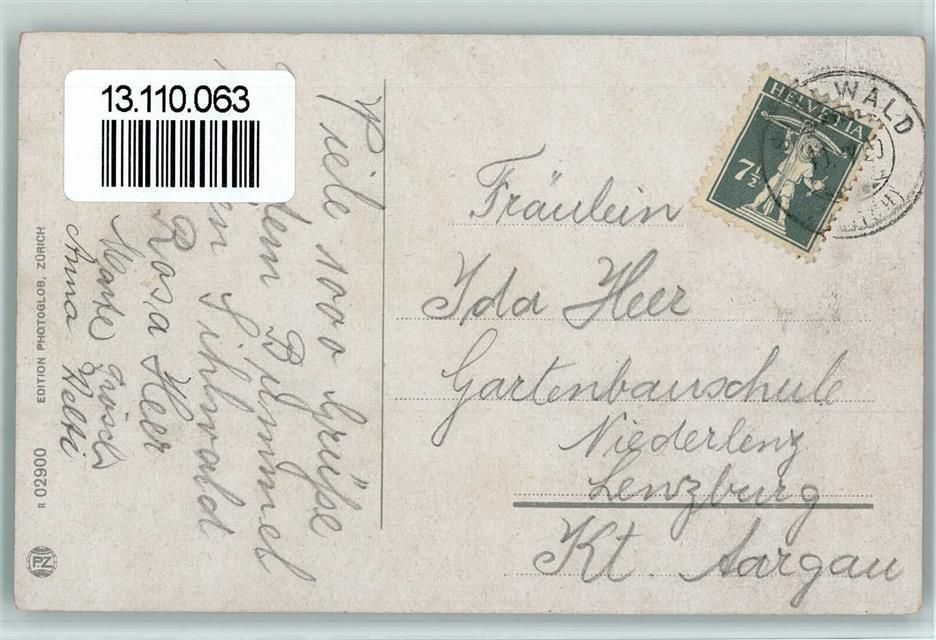 13.110.063
Viele 100 Grüße
Bummel
Sihlwald
Rosa Heer
Anna Welti
R 02900 EDITION PHOTOGLOB, ZÜRICH
PZ
HELVETIA
7½
WALD
Fräulein
Ida Heer
Gartenbauschule
Niederlenz
Lenzburg
Kt. Aargau